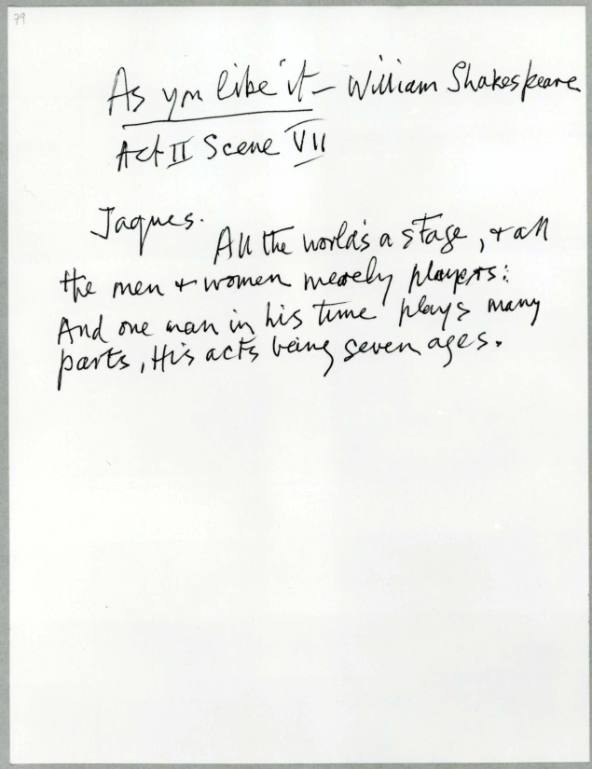 79
As you like it – William Shakespeare
Act II Scene VII
Jaques.
All the world's a stage, + all
the men + women merely players:
And one man in his time plays many
parts, His acts being seven ages.